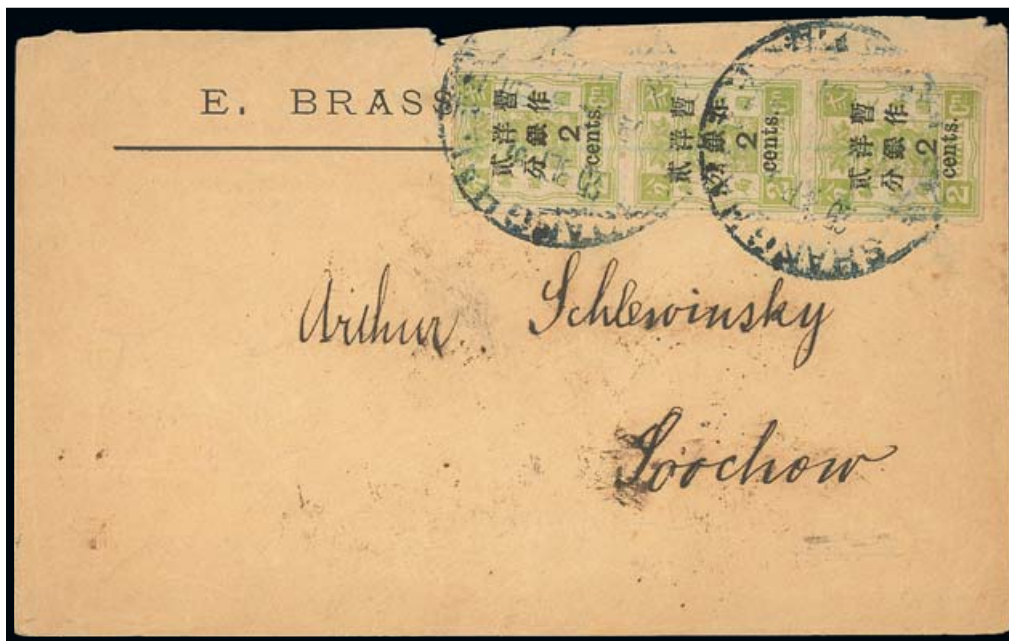 E. BRASS
暫作洋銀貳分
2
cents.
暫作洋銀貳分
2
cents.
暫作洋銀貳分
2
cents.
2
Arthur Schlewinsky
Soochow